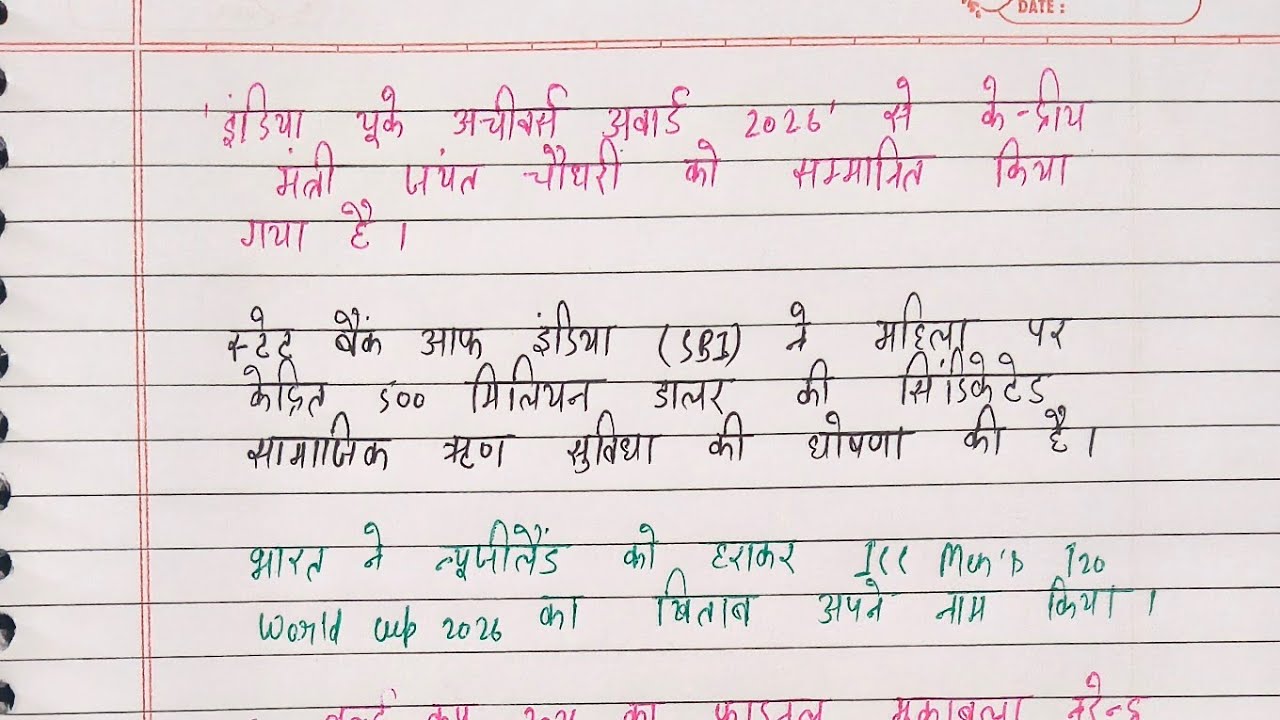 DATE :
'इंडिया यूके अचीवर्स अवार्ड 2026' से केन्द्रीय
मंत्री जयंत चौधरी को सम्मानित किया
गया है।
स्टेट बैंक आफ इंडिया (SBI) ने महिला पर
केद्रित 500 मिलियन डालर की सिंडिकेटेड
सामाजिक ऋण सुविधा की घोषणा की है।
भारत ने न्यूजीलैंड को हराकर ICC Men's T20
World Cup 2026 का खिताब अपने नाम किया।
का फाइनल मुकाबला नरेन्द्र